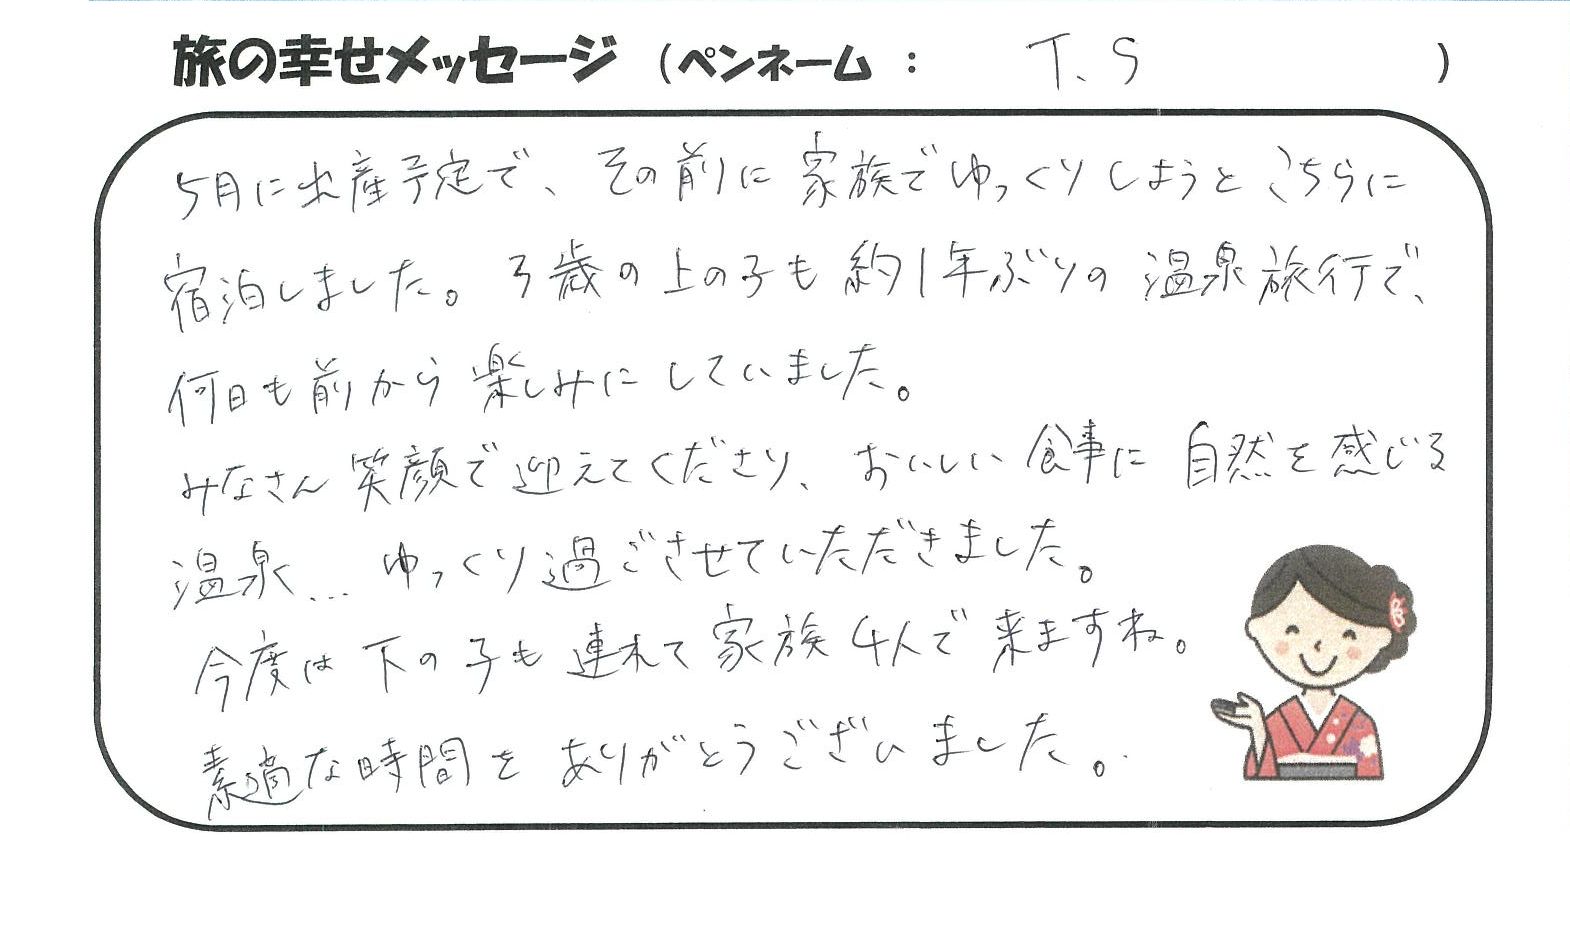 旅の幸せメッセージ (ペンネーム : T.S )
5月に出産予定で、その前に家族でゆっくりしようとこちらに
宿泊しました。3歳の上の子も約1年ぶりの温泉旅行で、
何日も前から楽しみにしていました。
みなさん笑顔で迎えてくださり、おいしい食事に自然を感じる
温泉…ゆっくり過ごさせていただきました。
今度は下の子も連れて家族4人で来ますね。
素適な時間をありがとうございました。